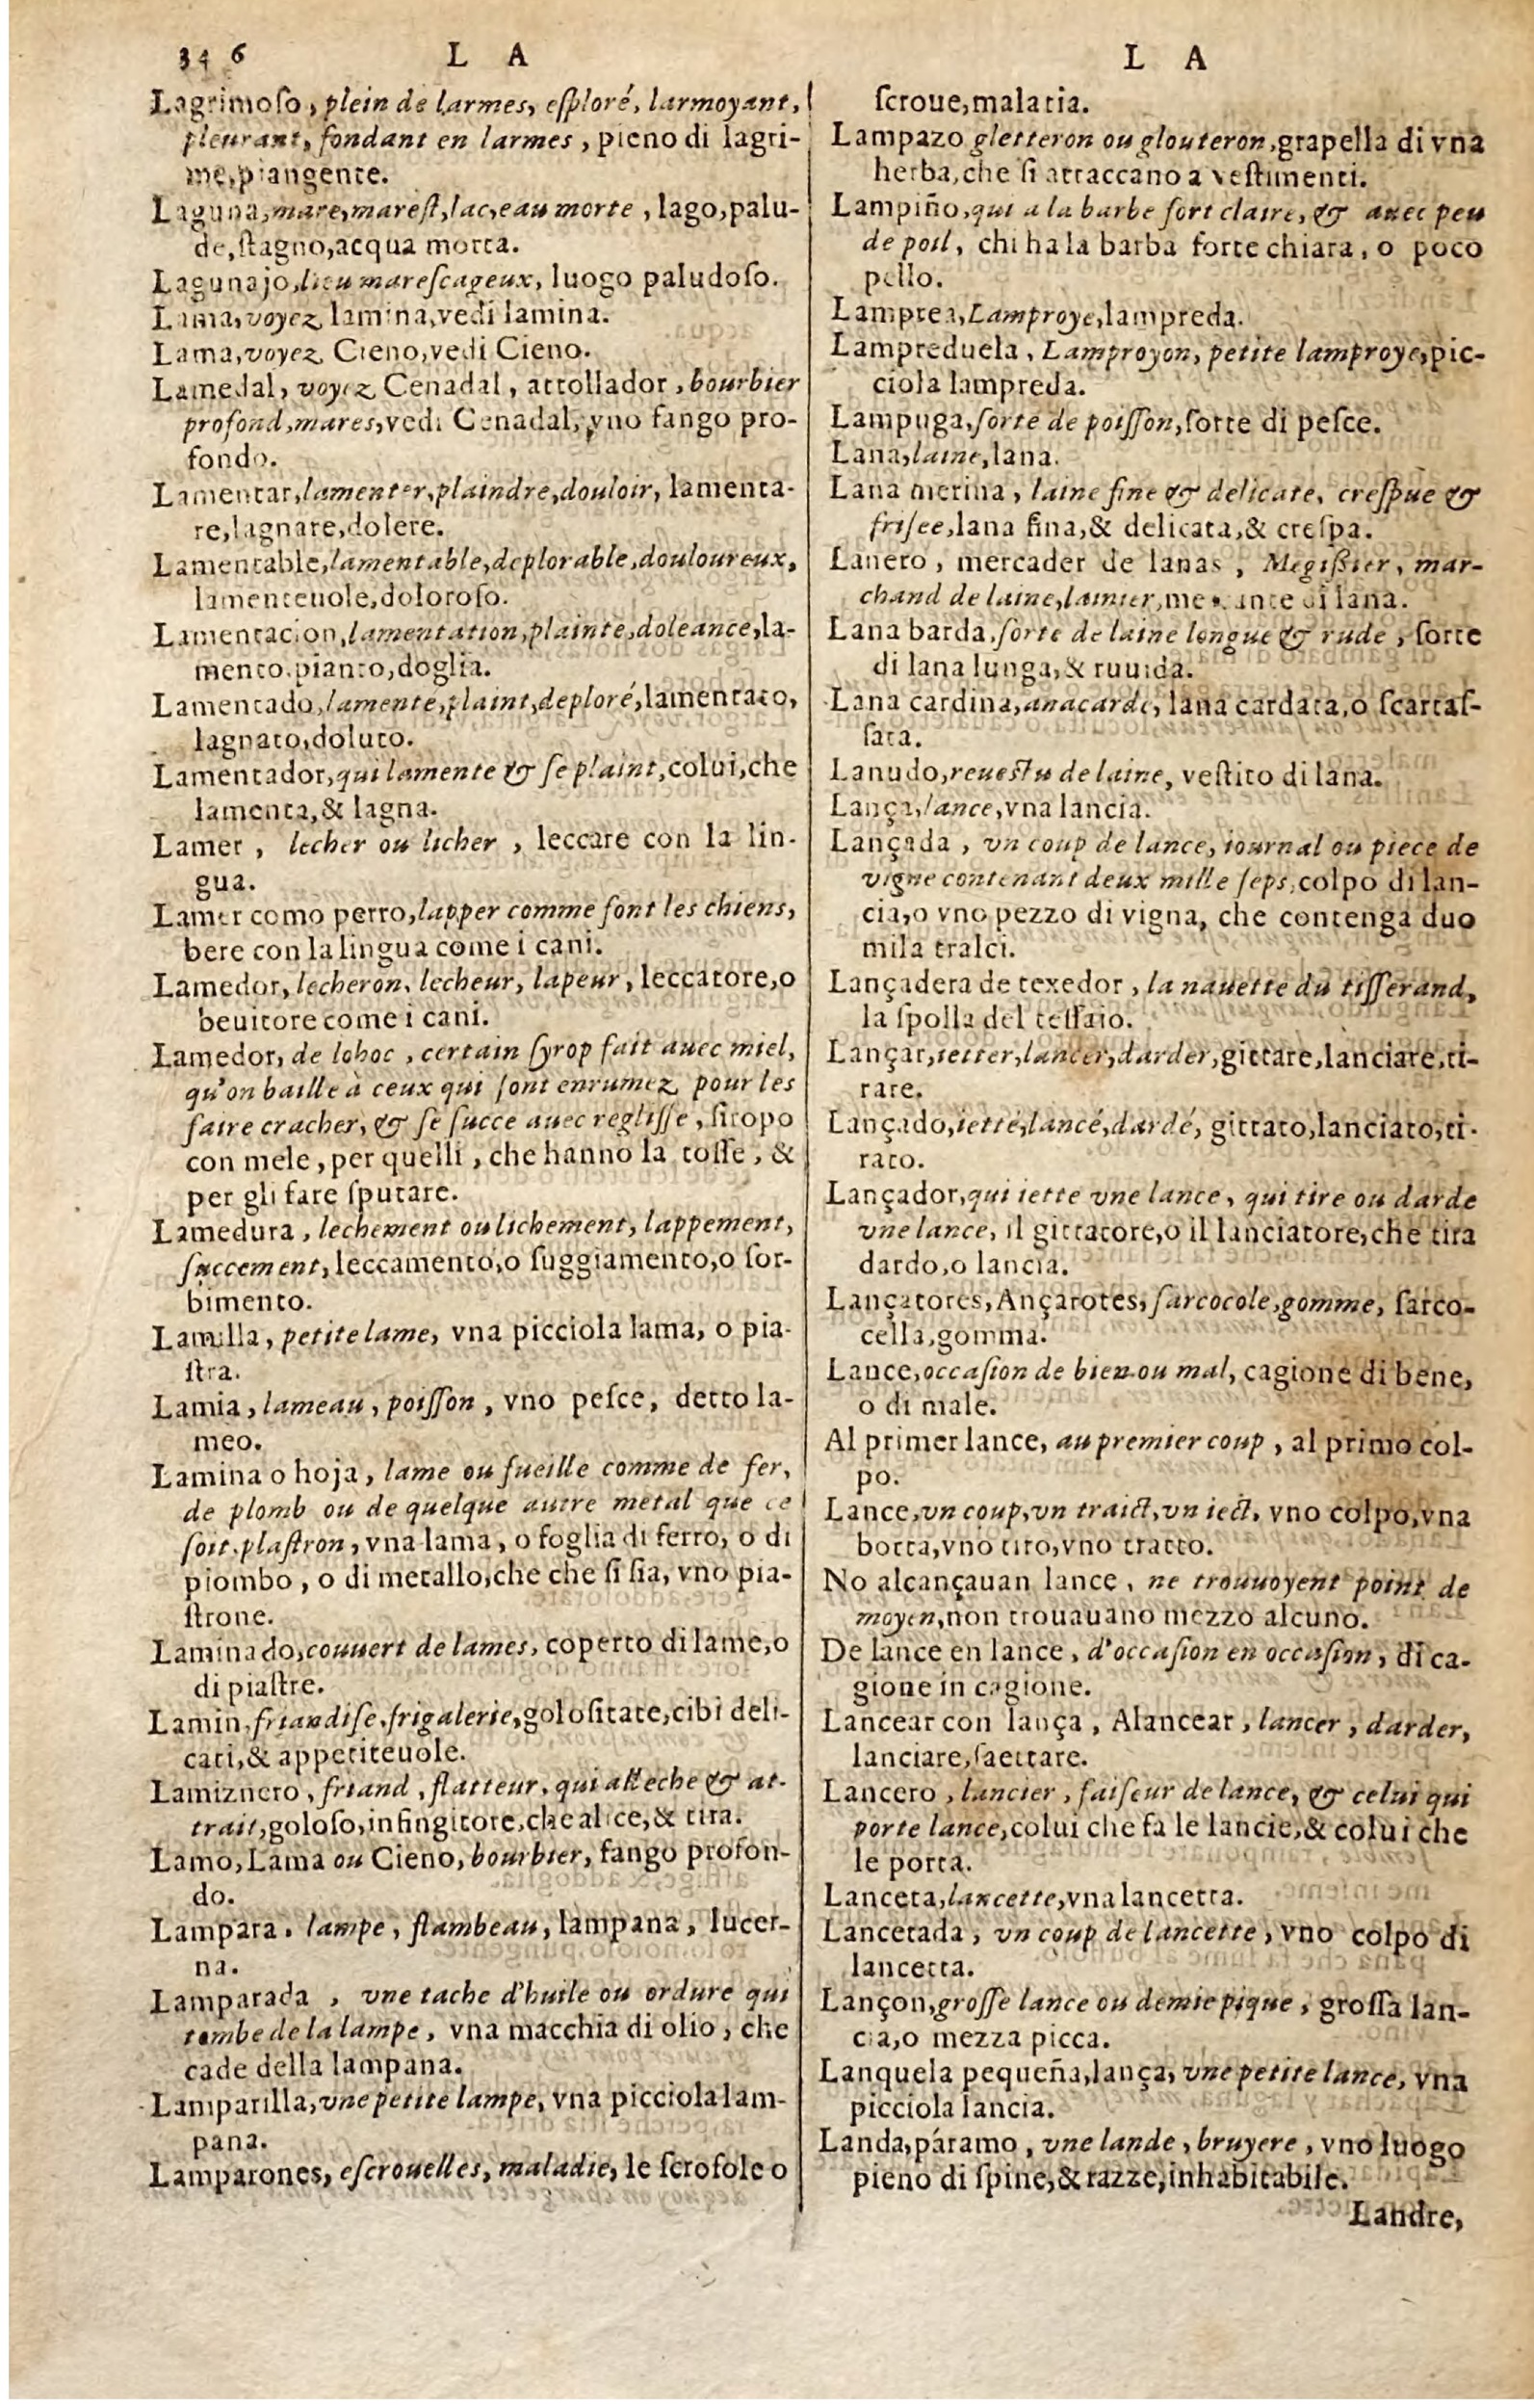 346 L A
Lagrimoſo, plein de larmes, eſploré, larmoyant,
pleurant, fondant en larmes, pieno di lagri-
me, piangente.
Laguna, mare, mareſt, lac, eau morte, lago, palu-
de, ſtagno, acqua morta.
Lagunajo, lieu mareſcageux, luogo paludoſo.
Lama, voyez lamina, vedi lamina.
Lama, voyez Cieno, vedi Cieno.
Lamedal, voyez Cenadal, attollador, bourbier
profond, mares, vedi Cenadal, vno fango pro-
fondo.
Lamentar, lamenter, plaindre, douloir, lamenta-
re, lagnare, dolere.
Lamentable, lamentable, deplorable, douloureux,
lamenteuole, doloroſo.
Lamentacion, lamentation, plainte, doleance, la-
mento, pianto, doglia.
Lamentado, lamenté, plaint, deploré, lamentato,
lagnato, doluto.
Lamentador, qui lamente & ſe plaint, colui, che
lamenta, & lagna.
Lamer, lecher ou licher, leccare con la lin-
gua.
Lamer como perro, lapper comme font les chiens,
bere con la lingua come i cani.
Lamedor, lecheron, lecheur, lapeur, leccatore, o
beuitore come i cani.
Lamedor, de lohoc, certain ſyrop fait auec miel,
qu'on baille à ceux qui ſont enrumez pour les
faire cracher, & ſe ſucce auec regliſſe, ſiropo
con mele, per quelli, che hanno la toſſe, &
per gli fare ſputare.
Lamedura, lechement ou lichement, lappement,
ſuccement, leccamento, o ſuggiamento, o ſor-
bimento.
Lamilla, petite lame, vna picciola lama, o pia-
ſtra.
Lamia, lameau, poiſſon, vno peſce, detto la-
meo.
Lamina o hoja, lame ou fueille comme de fer,
de plomb ou de quelque autre metal que ce
ſoit, plaſtron, vna lama, o foglia di ferro, o di
piombo, o di metallo, che che ſi ſia, vno pia-
ſtrone.
Laminado, couuert de lames, coperto di lame, o
di piaſtre.
Lamin, friandiſe, frigalerie, goloſitate, cibi deli-
cati, & appetiteuole.
Lamiznero, friand, flatteur, qui alleche & at-
trait, goloſo, infingitore, che alice, & tira.
Lamo, Lama ou Cieno, bourbier, fango profon-
do.
Lampara, lampe, flambeau, lampana, lucer-
na.
Lamparada, vne tache d'huile ou ordure qui
tombe de la lampe, vna macchia di olio, che
cade della lampana.
Lamparilla, vne petite lampe, vna picciola lam-
pana.
Lamparones, eſcrouelles, maladie, le ſcrofole o
L A
ſcroue, malatia.
Lampazo gletteron ou glouteron, grapella di vna
herba, che ſi attaccano a veſtimenti.
Lampiño, qui a la barbe fort claire, & auec peu
de poil, chi ha la barba forte chiara, o poco
pello.
Lamprea, Lamproye, lampreda.
Lampreduela, Lamproyon, petite lamproye, pic-
ciola lampreda.
Lampuga, ſorte de poiſſon, ſorte di peſce.
Lana, laine, lana.
Lana merina, laine fine & delicate, creſpue &
friſee, lana fina, & delicata, & creſpa.
Lanero, mercader de lanas, Megiſſier, mar-
chand de laine, lainier, mercante di lana.
Lana barda, ſorte de laine longue & rude, ſorte
di lana lunga, & ruuida.
Lana cardina, anacarde, lana cardata, o ſcartaſ-
ſata.
Lanudo, reueſtu de laine, veſtito di lana.
Lança, lance, vna lancia.
Lançada, vn coup de lance, iournal ou piece de
vigne contenant deux mille ſeps, colpo di lan-
cia, o vno pezzo di vigna, che contenga duo
mila tralci.
Lançadera de texedor, la nauette du tiſſerand,
la ſpolla del teſſaio.
Lançar, ietter, lancer, darder, gittare, lanciare, ti-
rare.
Lançado, ietté, lancé, dardé, gittato, lanciato, ti-
rato.
Lançador, qui iette vne lance, qui tire ou darde
vne lance, il gittatore, o il lanciatore, che tira
dardo, o lancia.
Lançatores, Ançarotes, ſarcocole, gomme, ſarco-
cella, gomma.
Lance, occaſion de bien ou mal, cagione di bene,
o di male.
Al primer lance, au premier coup, al primo col-
po.
Lance, vn coup, vn traict, vn iect, vno colpo, vna
botta, vno tiro, vno tratto.
No alcançauan lance, ne trouuoyent point de
moyen, non trouauano mezzo alcuno.
De lance en lance, d'occaſion en occaſion, di ca-
gione in cagione.
Lancear con lança, Alancear, lancer, darder,
lanciare, ſaettare.
Lancero, lancier, faiſeur de lance, & celui qui
porte lance, colui che fa le lancie, & colui che
le porta.
Lanceta, lancette, vna lancetta.
Lancetada, vn coup de lancette, vno colpo di
lancetta.
Lançon, groſſe lance ou demie pique, groſſa lan-
cia, o mezza picca.
Lanquela pequeña, lança, vne petite lance, vna
picciola lancia.
Landa, páramo, vne lande, bruyere, vno luogo
pieno di ſpine, & razze, inhabitabile.
Landre,